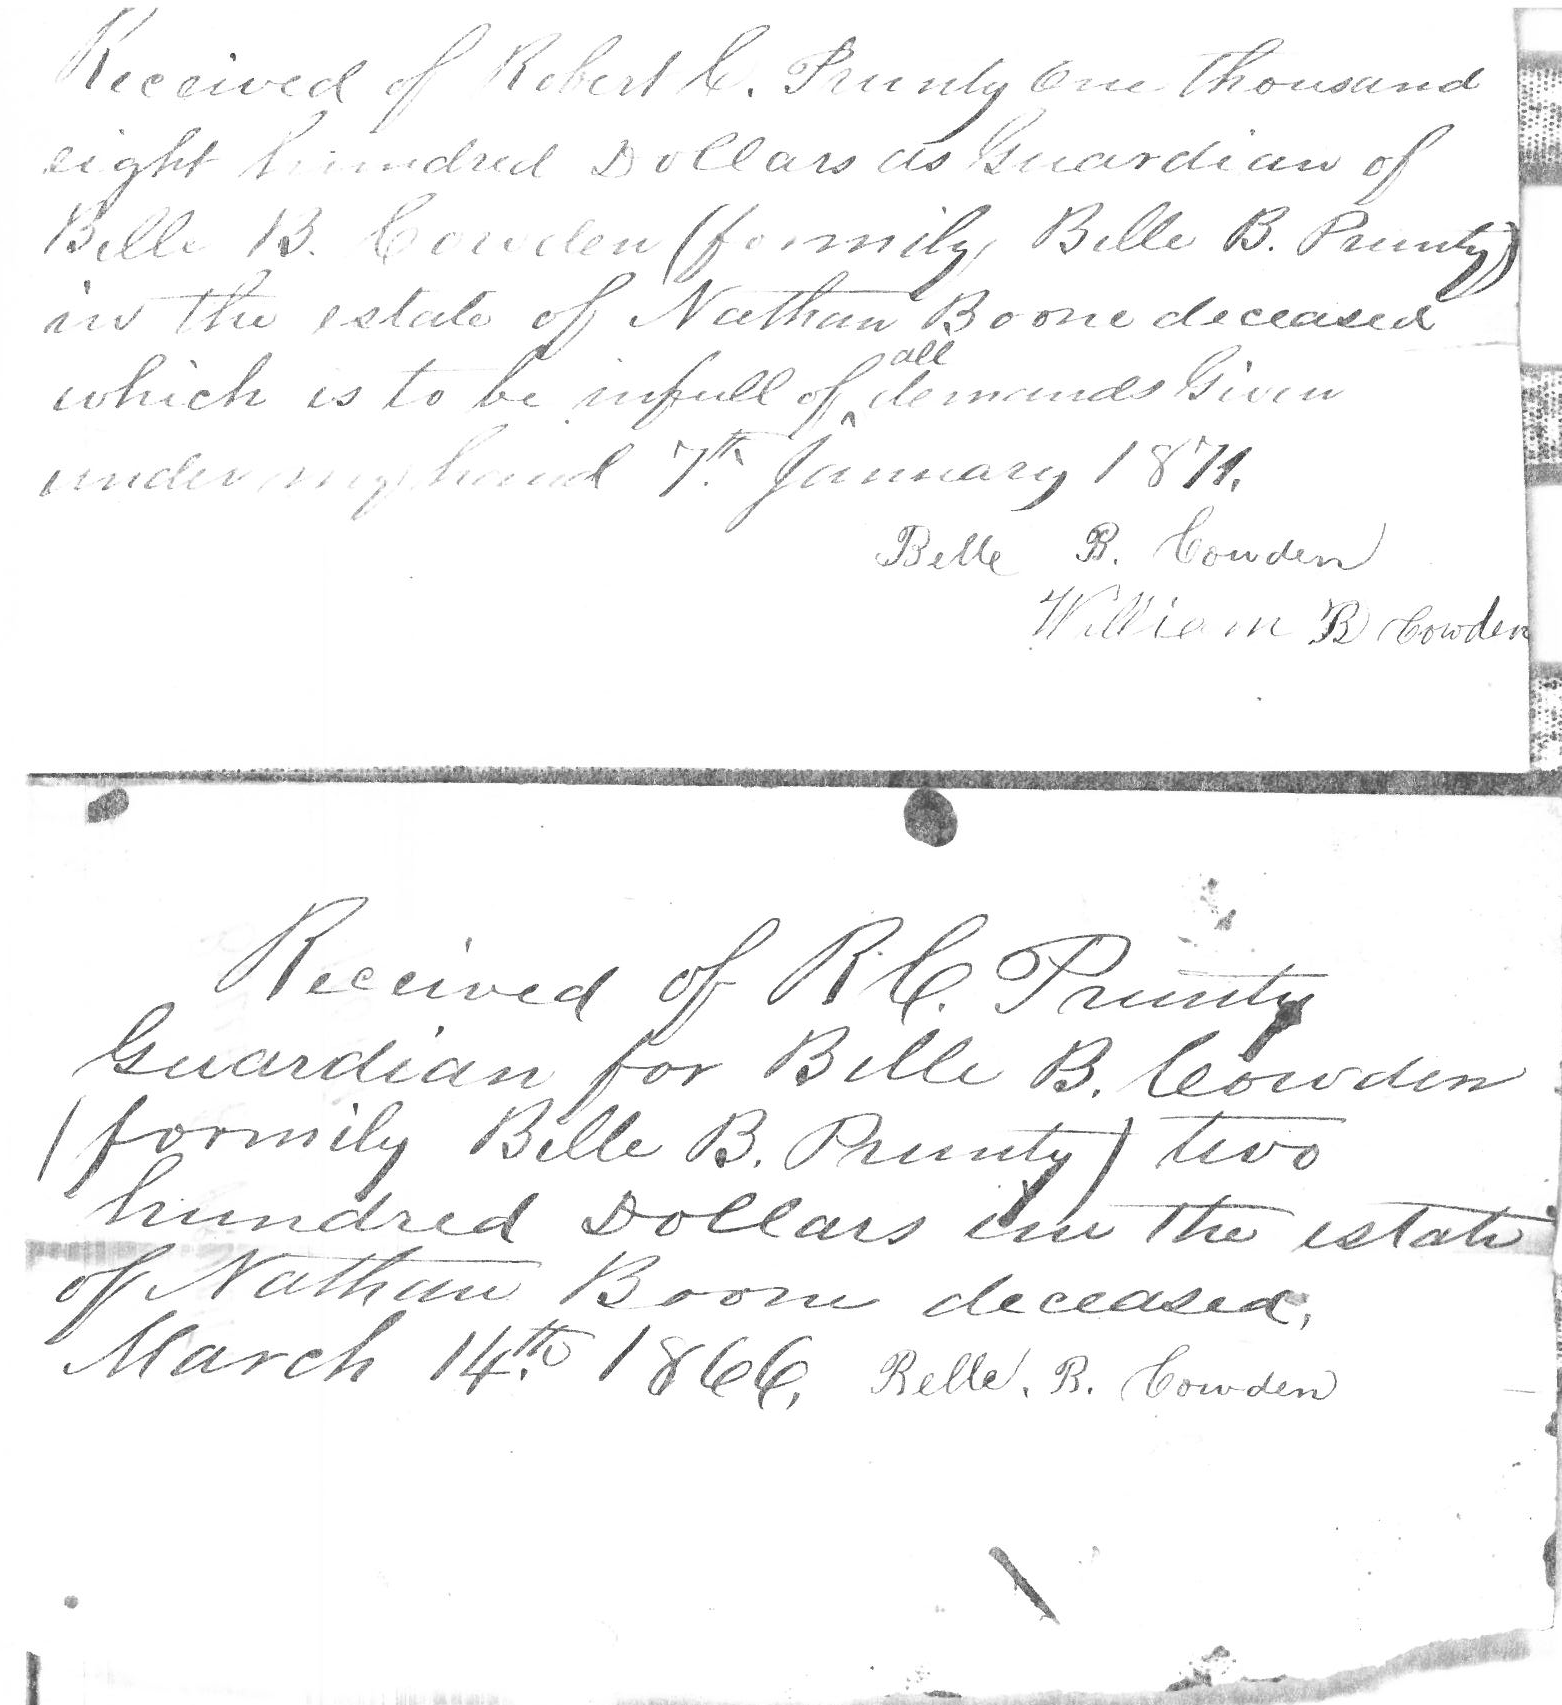 Received of Robert C. Prunty One thousand
eight hundred Dollars as Guardian of
Belle B. Cowden (formily, Belle B. Prunty)
in the estate of Nathan Boone deceased
which is to be infull of all demands Given
under my hand 7th. January 1871.
Belle B. Cowden
William B Cowden
Received of R. C. Prunty
Guardian for Belle B. Cowden
(formily Belle B. Prunty) two
hundred Dollars in the estate
of Nathan Boone deceased,
March 14th. 1866, Belle. B. Cowden